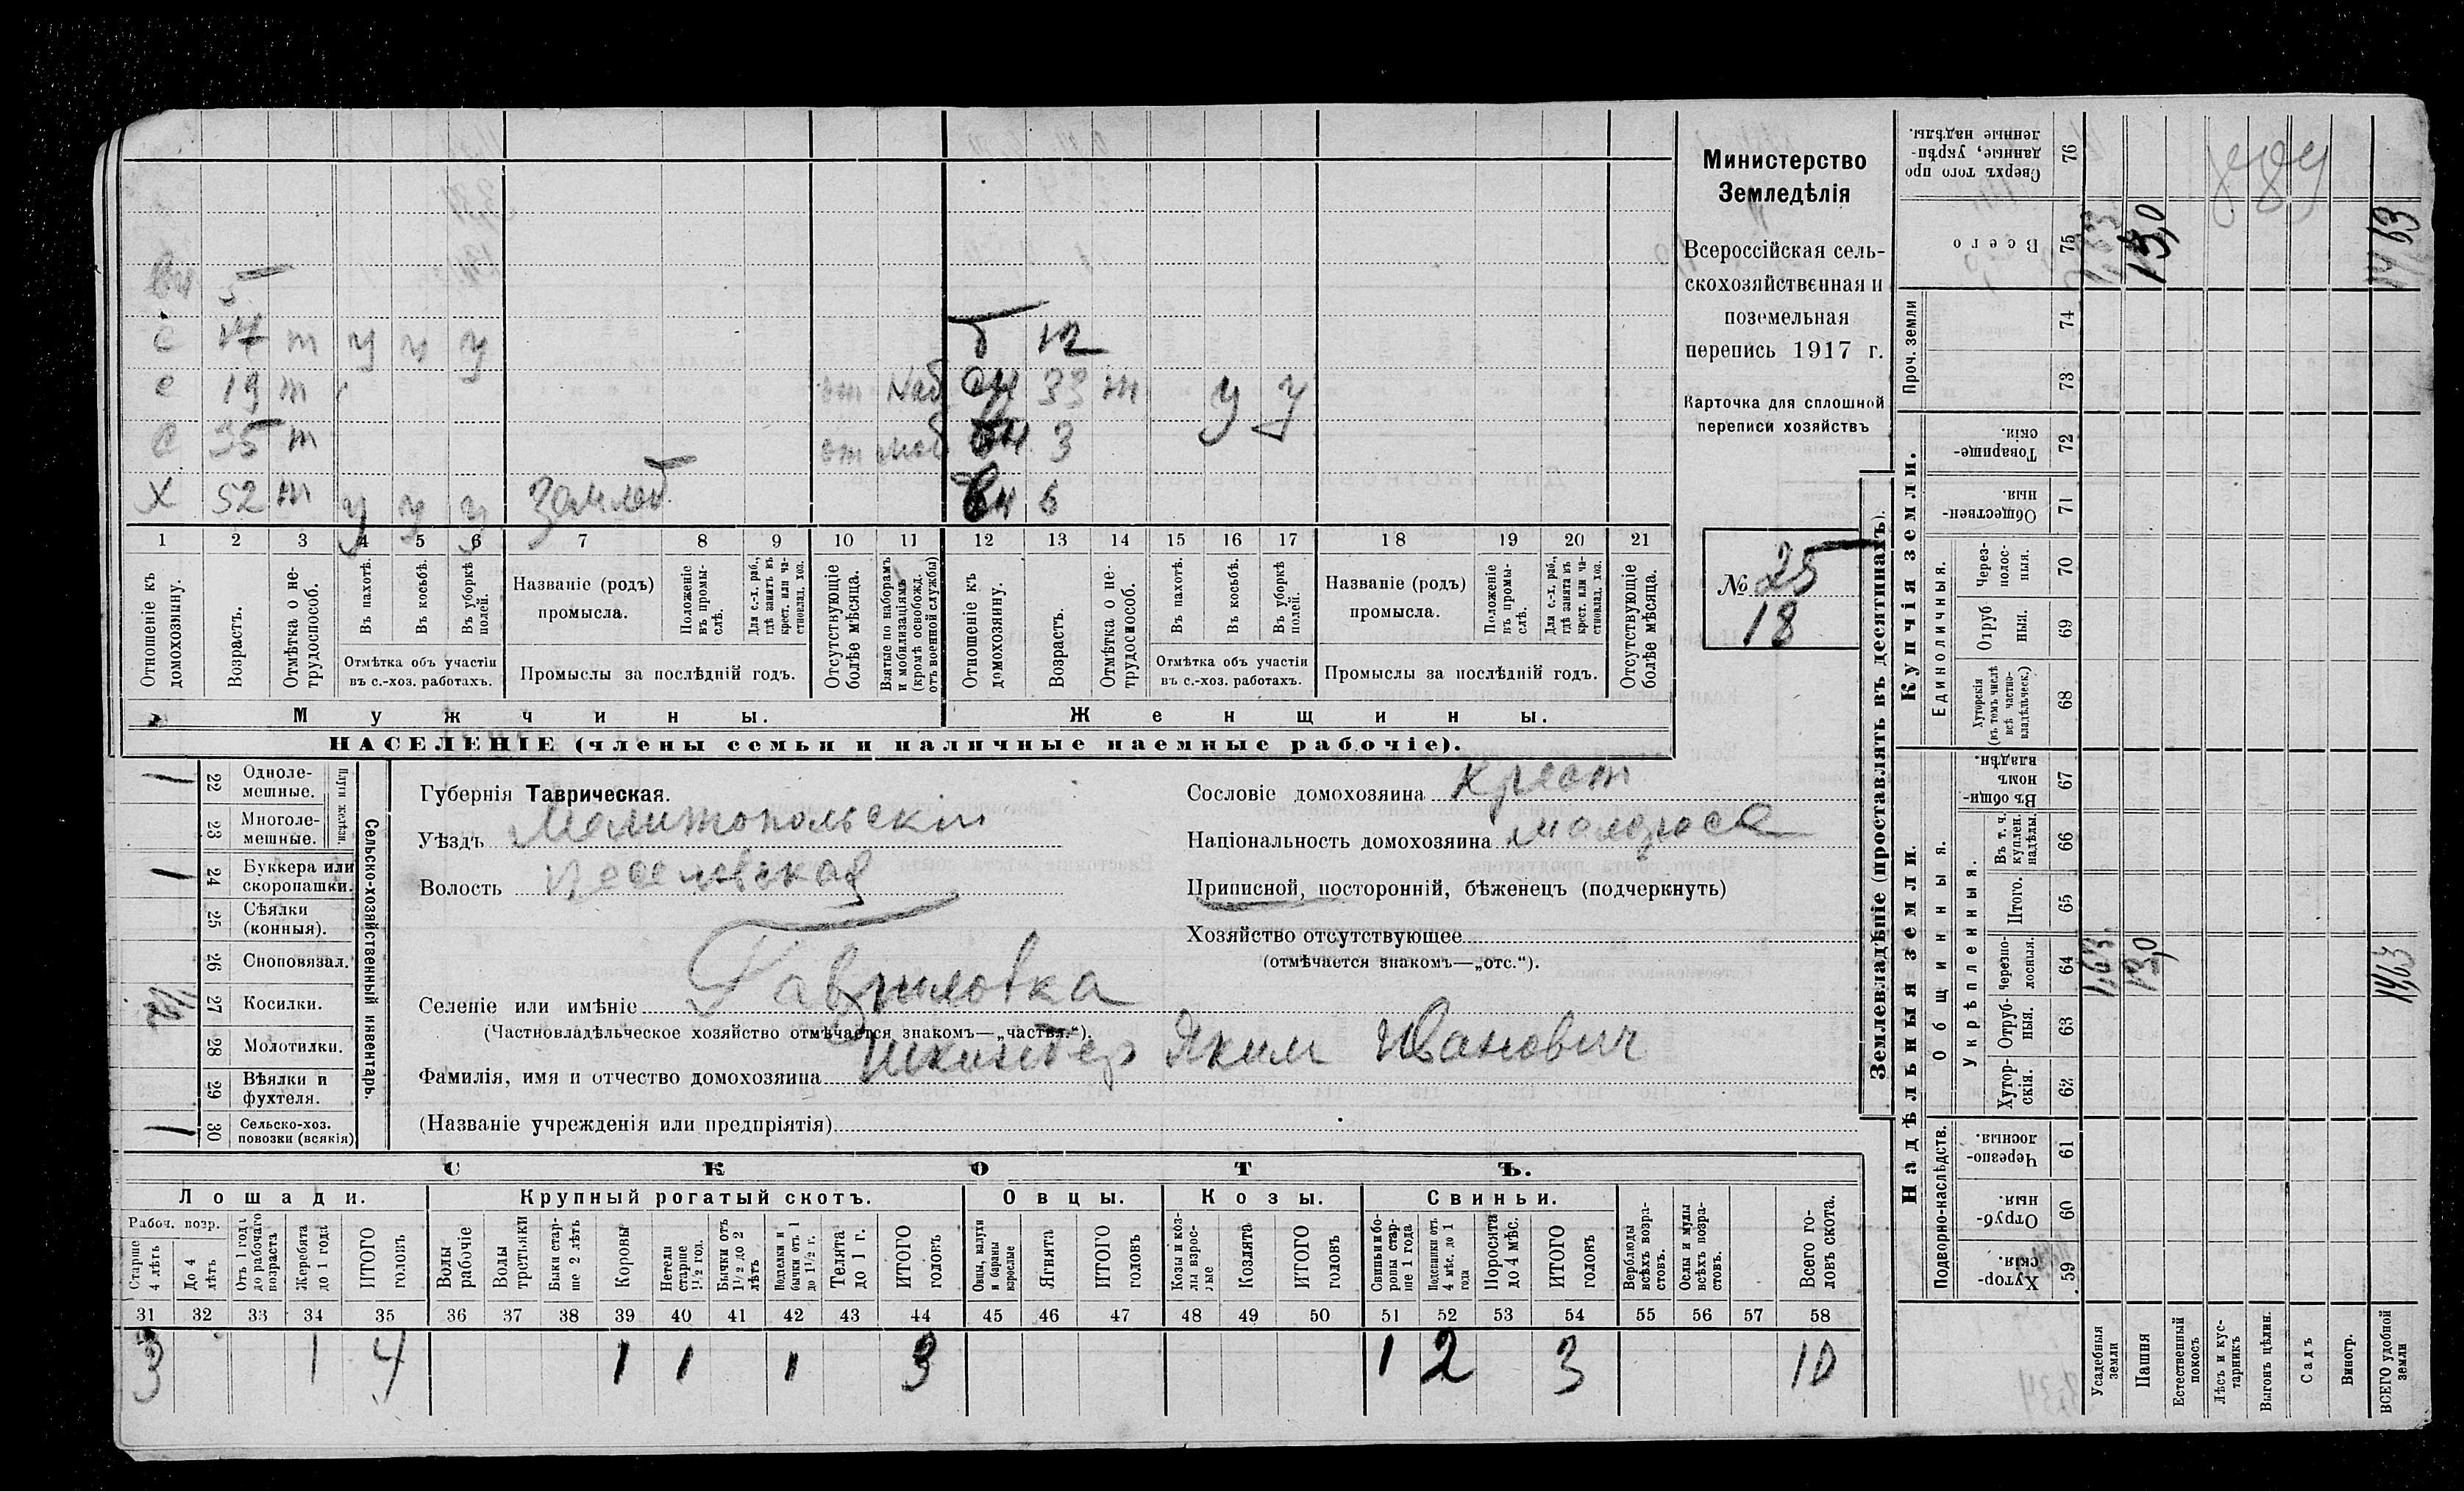 вн 5
с 14 т у у у
б 12
с 19 т
от моб
сн 33 т у у
с 35 т
от моб
вн 3
Х 52 т у у у Землед
вн 6
1 2 3 4 5 6 7 8 9 10 11 12 13 14 15 16 17 18 19 20 21
Отношеніе къ домохозяину.
Возрастъ.
Отмѣтка о нетрудоспособ.
Въ пахотѣ.
Въ косьбѣ.
Въ уборкѣ полей.
Отмѣтка объ участіи
въ с.-хоз. работахъ.
Названіе (родъ)
промысла.
Положеніе въ промыслѣ.
Для с.-х. раб., гдѣ занятъ въ крест. или частновлад. хоз.
Промыслы за послѣдній годъ.
Отсутствующіе болѣе мѣсяца.
Взятые по наборамъ и мобилизаціямъ (кромѣ освобожд. отъ военной службы)
Отношеніе къ домохозяину.
Возрастъ.
Отмѣтка о нетрудоспособ.
Въ пахотѣ.
Въ косьбѣ.
Въ уборкѣ полей.
Отмѣтка объ участіи
въ с.-хоз. работахъ.
Названіе (родъ)
промысла.
Положеніе въ промыслѣ.
Для с.-х. раб., гдѣ занята въ крест. или частновлад. хоз.
Промыслы за послѣдній годъ.
Отсутствующіе болѣе мѣсяца.
Мужчины.
Женщины.
НАСЕЛЕНІЕ (члены семьи и наличные наемные рабочіе).
Министерство
Земледѣлія
Всероссійская сель-
скохозяйственная и
поземельная
перепись 1917 г.
Карточка для сплошной
переписи хозяйствъ
№ 25
18
Сельско-хозяйственный инвентарь.
Плуги желѣзн.
1 22 Одноле-
мешные.
23 Многоле-
мешные.
1 24 Буккера или
скоропашки.
25 Сѣялки
(конныя).
26 Сноповязал.
27 Косилки.
28 Молотилки.
29 Вѣялки и
фухтеля.
1 30 Сельско-хоз.
повозки (всякія)
Губернія Таврическая.
Уѣздъ Мелитопольскій
Волость Веселовская
Селеніе или имѣніе Гавриловка
(Частновладѣльческое хозяйство отмѣчается знакомъ—„частвл.“).
Фамилія, имя и отчество домохозяина Шкиндер Яким Иванович
(Названіе учрежденія или предпріятія)
Сословіе домохозяина Крест
Національность домохозяина малоросс
Приписной, посторонній, бѣженецъ (подчеркнуть)
Хозяйство отсутствующее
(отмѣчается знакомъ—„отс.“).
СКОТЪ.
Лошади. Крупный рогатый скотъ. Овцы. Козы. Свиньи.
Рабоч. возр.
Старше 4 лѣтъ
До 4 лѣтъ
Отъ 1 года до рабочаго возраста
Жеребята до 1 года
ИТОГО головъ
Волы рабочіе
Волы третьяки
Быки старше 2 лѣтъ
Коровы
Нетели старше 1½ год.
Бычки отъ 1½ до 2 лѣтъ
Подтелки и бычки отъ 1 до 1½ г.
Телята до 1 г.
ИТОГО головъ
Овцы, валухи и бараны взрослые
Ягнята
ИТОГО головъ
Козы и козлы взрослые
Козлята
ИТОГО головъ
Свиньи и боровы старше 1 года
Подсвинки отъ 4 мѣс. до 1 года
Поросята до 4 мѣс.
ИТОГО головъ
Верблюды всѣхъ возрастовъ.
Ослы и мулы всѣхъ возрастовъ.
Всего головъ скота.
31 32 33 34 35 36 37 38 39 40 41 42 43 44 45 46 47 48 49 50 51 52 53 54 55 56 57 58
3 1 4 1 1 1 3 1 2 3 10
Землевладѣніе (проставлять въ десятинахъ).
Надѣльныя земли.
Купчія земли.
Проч. земли
Подворно-наслѣдств.
Общинныя.
Укрѣпленныя.
Единоличныя.
59 Хутор-
скія.
60 Отруб-
ныя.
61 Черезпо-
лосныя.
62 Хутор-
скія.
63 Отруб-
ныя.
64 Черезпо-
лосныя.
65 Итого.
66 Въ т. ч. куплен. надѣлы.
67 Въ общи-
номъ
владѣн.
68 Хуторскія (въ томъ числѣ всѣ частновладѣльческ.)
69 Отруб
ныя.
70 Через-
полос-
ныя.
71 Обществен-
ныя.
72 Товарище-
скія.
73
74
75 Всего
76 Сверхъ того про
данные, укрѣп-
ленные надѣлы.
Усадебныя земли 1,63 1,63
Пашня 13,0 13,0
Естественный покосъ
Лѣсъ и кустарникъ
Выгонъ цѣлин.
Садъ
Виногр.
ВСЕГО удобной земли 14,63 14,63